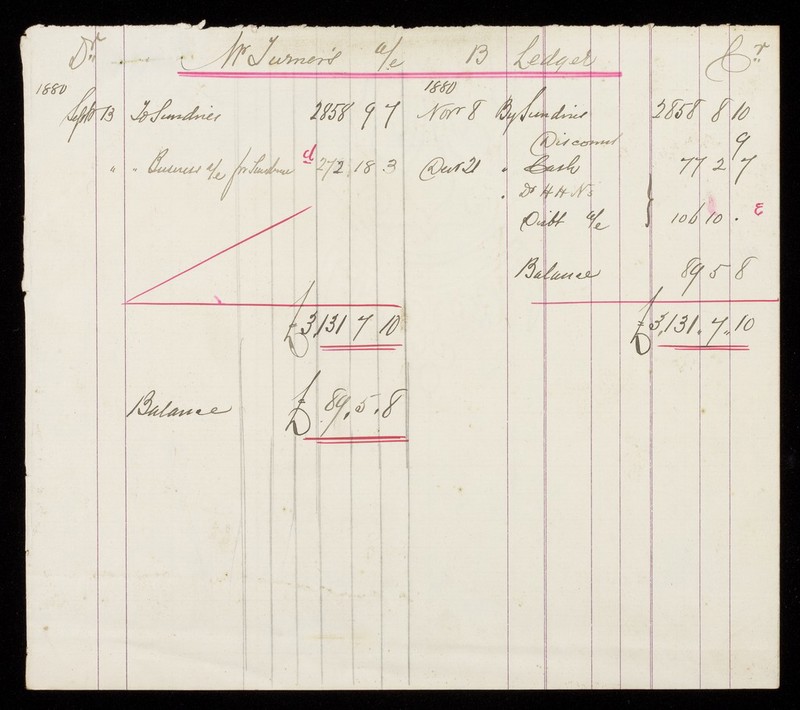 Dr Mr Turner's a/c B Ledger Cr
1880 1880
Sept 13 To Sundries 2858 9 7 Novr 8 By Sundries 2858 8 10
Discount 9
" " Business a/c for Sundries d 272 18 3 Decr 21 " Cash 77 2 7
" Dr H H N's
Debt a/c } 106 10 . E
Balance 89 5 8
£3,131 7 10 £3,131.7.10
Balance £ 89.5.8